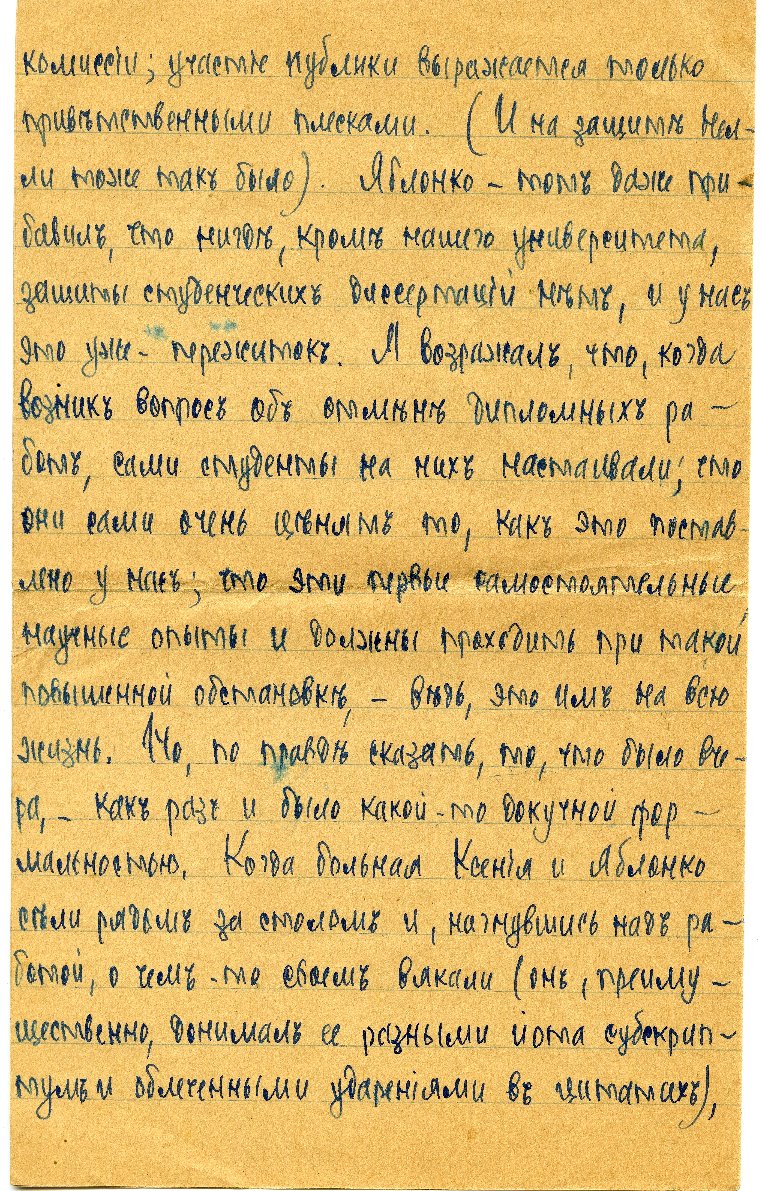 комиссіи; участіе публики выражается только
привѣтственными плесками. (И на защитѣ Нел-
ли тоже такъ было). Яблонко – тотъ даже при-
бавилъ, что нигдѣ, кромѣ нашего университета,
защиты студенческихъ диссертацій нѣтъ, и у насъ
это уже – пережитокъ. Я возражалъ, что, когда
возникъ вопросъ объ отмѣнѣ дипломныхъ ра-
ботъ, сами студенты на нихъ настаивали; что
они сами очень цѣнятъ то, какъ это постав-
лено у насъ; что эти первые самостоятельные
научные опыты и должны проходить при такой
повышенной обстановкѣ, – вѣдь, это имъ на всю
жизнь. Но, по правдѣ сказать, то, что было вче-
ра, – какъ разъ и было какой-то докучной фор-
мальностью. Когда больная Ксенія и Яблонко
сѣли рядомъ за столомъ и, нагнувшись надъ ра-
ботой, о чемъ-то своемъ вякали (онъ, преиму-
щественно, донималъ ее разными йота субскрип-
тумъ и облеченными удареніями въ цитатахъ),